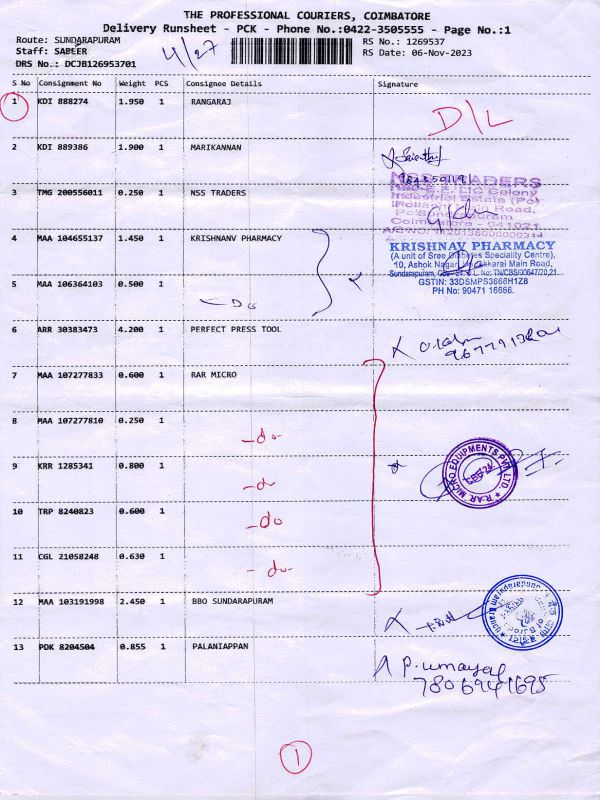 THE PROFESSIONAL COURIERS, COIMBATORE
Delivery Runsheet - PCK - Phone No.:0422-3505555 - Page No.:1
Route: SUNDARAPURAM
Staff: SABEER
DRS No.: DCJB126953701
4/27
RS No.: 1269537
RS Date: 06-Nov-2023
S No Consignment No Weight PCS Consignee Details Signature
1 KDI 888274 1.950 1 RANGARAJ D/L
2 KDI 889386 1.900 1 MARIKANNAN
3 TMG 200556011 0.250 1 NSS TRADERS
TRADERS
LIC Colony
Industrial Estate (Po)
Main Road,
Coimbatore - 641021
4 MAA 104655137 1.450 1 KRISHNANV PHARMACY
KRISHNAV PHARMACY
(A unit of Sree Diabetes Speciality Centre),
10, Ashok Nagar, Main Road,
Sundarapuram,
GSTIN: 33DSMPS3666H1Z8
PH No: 90471 16666.
5 MAA 106364103 0.500 1
6 ARR 30383473 4.200 1 PERFECT PRESS TOOL
7 MAA 107277833 0.600 1 RAR MICRO
8 MAA 107277810 0.250 1 -do-
9 KRR 1285341 0.800 1 -do-
R.AR. MICRO EQUIPMENTS PVT. LTD.
10 TRP 8240823 0.600 1 -do-
11 CGL 21058248 0.630 1 -do-
12 MAA 103191998 2.450 1 BBO SUNDARAPURAM
13 PDK 8204504 0.855 1 PALANIAPPAN
P. umayal
7806941695
1